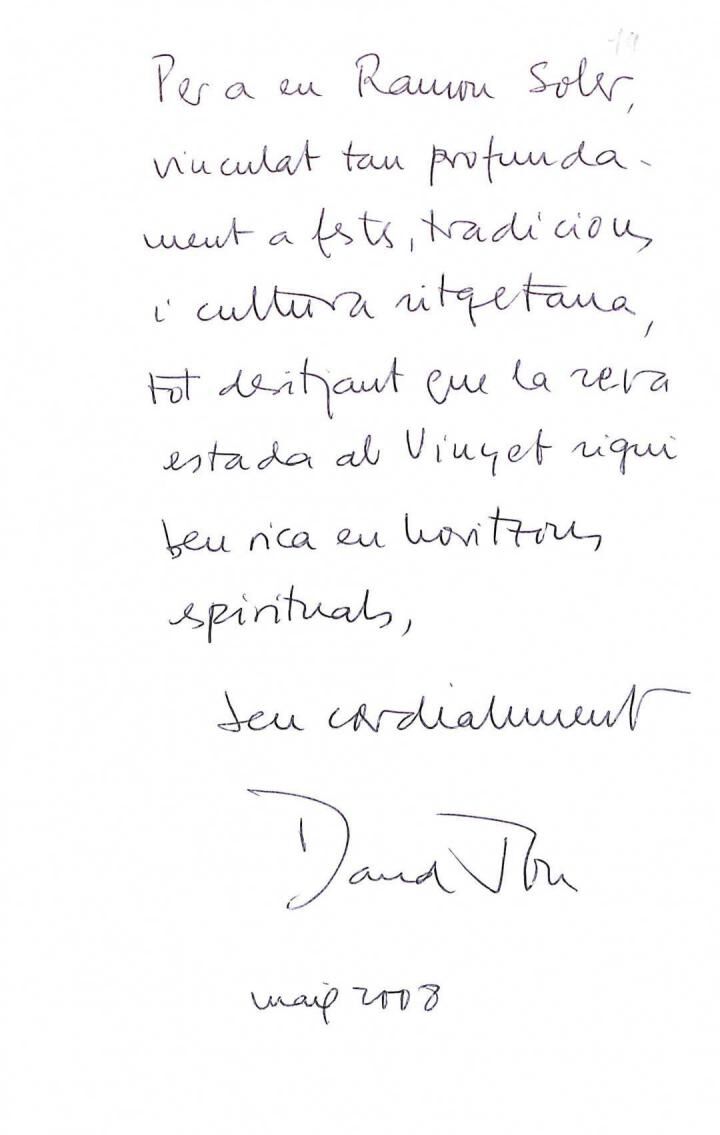 Per a en Ramon Soler,
vinculat tan profunda-
ment a fets, tradicions
i cultura sitgetana,
tot desitjant que la seva
estada al Vinyet sigui
ben rica en horitzons
espirituals,
seu cordialment
David Jou
maig 2008